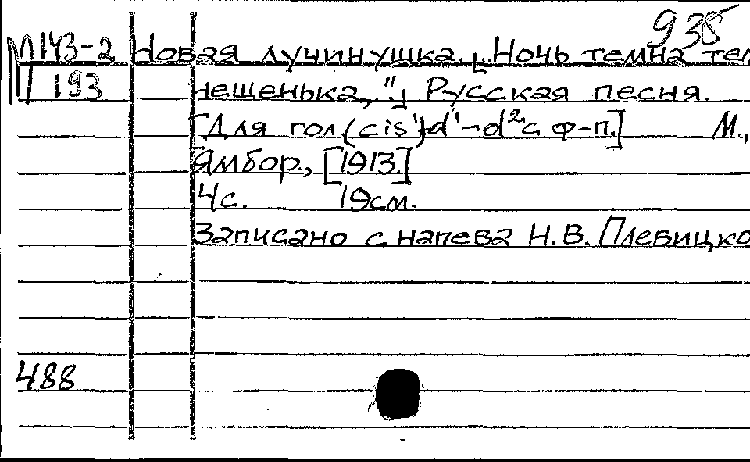 935
М143-2 Новая лучинушка. "Ночь темна тем
П 193 нещенька,". Русская песня.
[Для гол(cis¹)d¹-d² с ф-п.] М.,
Ямбор., [1913.]
4с. 19см.
Записано с напева Н.В. Плевицко
488